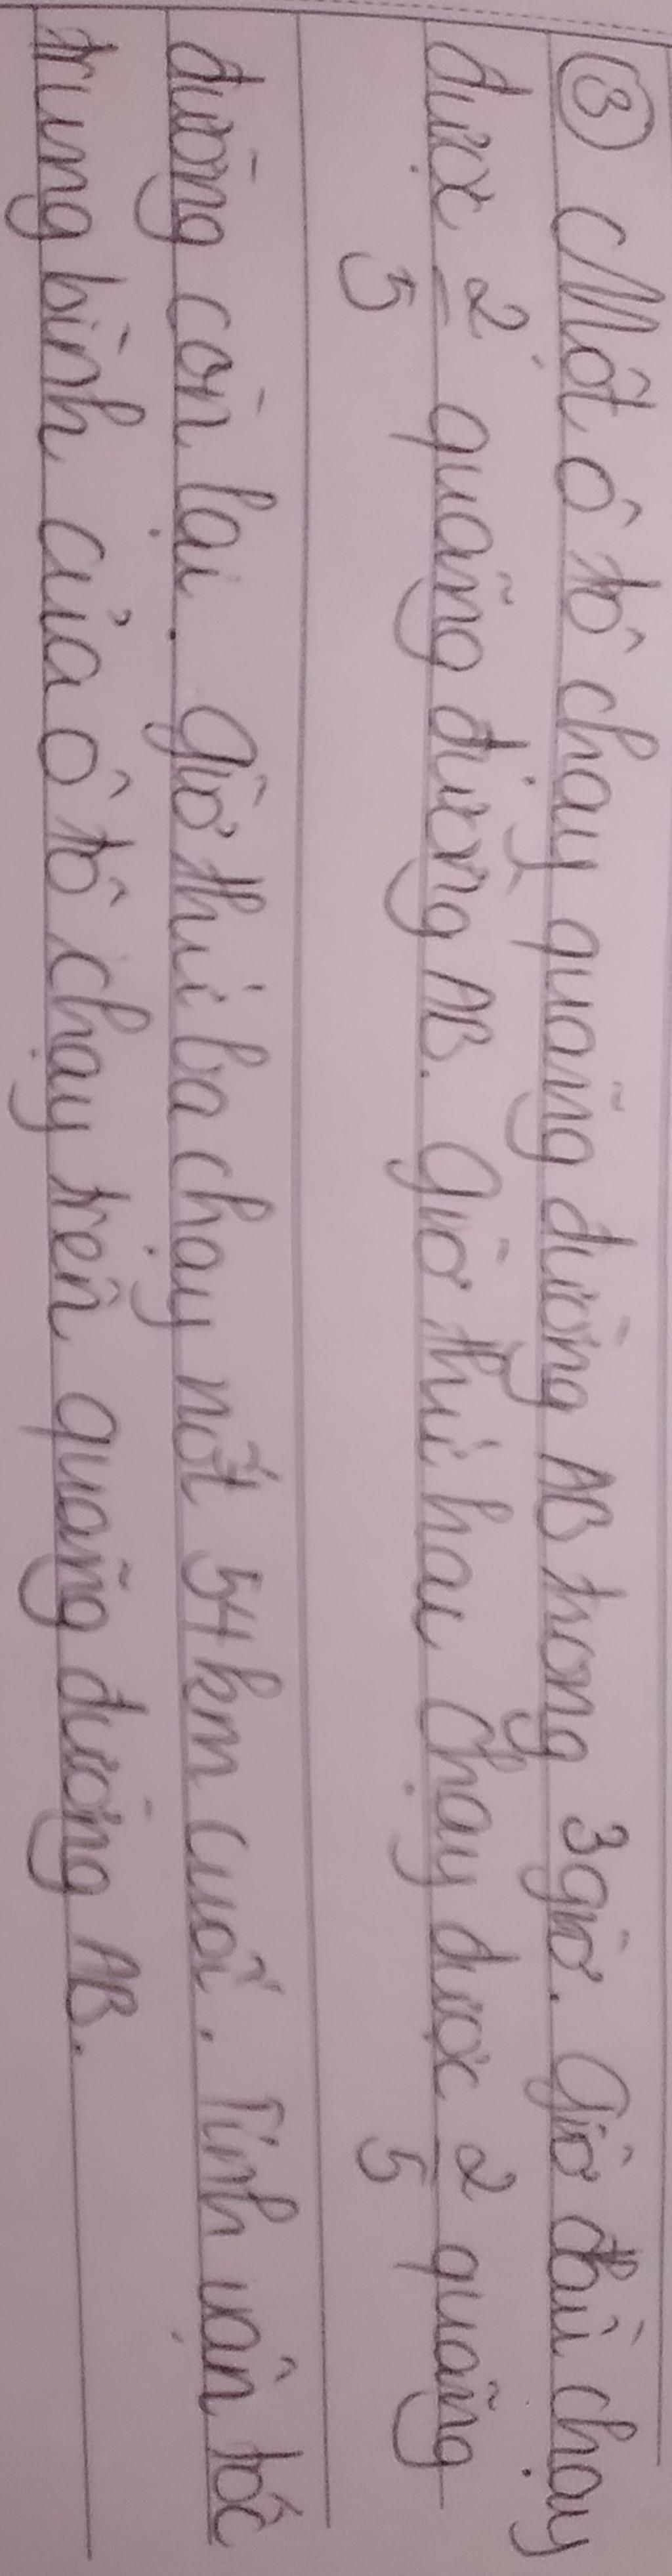 ③ Một ô tô chạy quãng đường AB trong 3 giờ. Giờ đầu chạy
được 2/5 quãng đường AB. Giờ thứ hai chạy được 2/5 quãng
đường còn lại. Giờ thứ ba chạy nốt 54km cuối. Tính vận tốc
trung bình của ô tô chạy trên quãng đường AB.